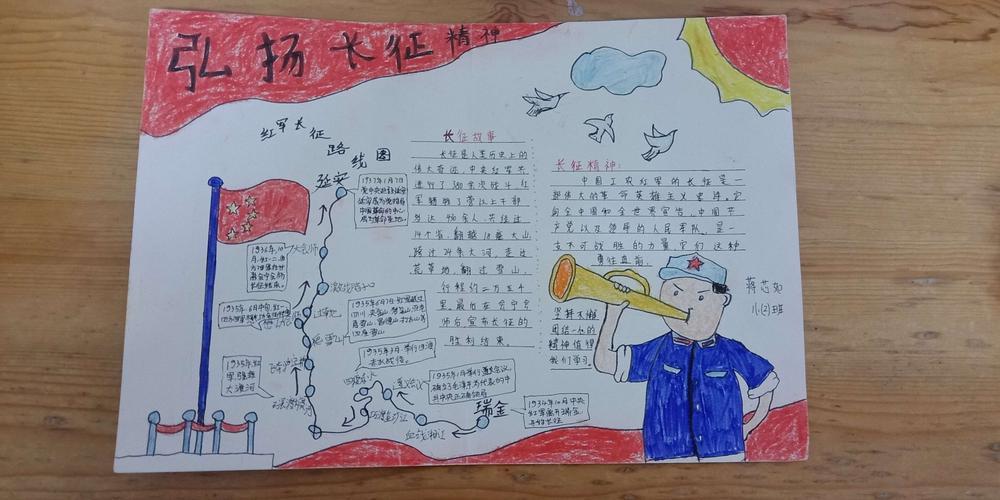 弘扬长征精神
红军长征路线图
延安
长征故事
长征是人类历史上的
伟大奇迹,中央红军共
进行了380余次战斗,红
军牺牲了营以上干部
多达430余人,共经过
14个省,翻越18座大山,
跨过24条大河,走过
荒草地,翻过雪山,
行程约二万五千
里,最后在会宁会
师后宣布长征的
胜利结束。
长征精神:
中国工农红军的长征是一
部伟大的革命英雄主义史诗。它
向全中国和全世界宣告,中国共
产党以及领导的人民军队,是一
支不可战胜的力量,它们这种
勇往直前,
坚持不懈
团结一心的
精神值得
我们学习。
蒋芯
小(2)班
大会师
激战腊子口
过草地
爬雪山
1935年红
军强渡
大渡河
强渡大渡河
飞夺泸定桥
1935年3月,举行四渡
赤水战役。
四渡赤水
遵义会议
1935年1月举行遵义会议,
确立了毛泽东为代表的中
共中央正确领导
巧渡金沙江
血战湘江
瑞金
1934年10月中央
红军离开瑞金,
开始长征